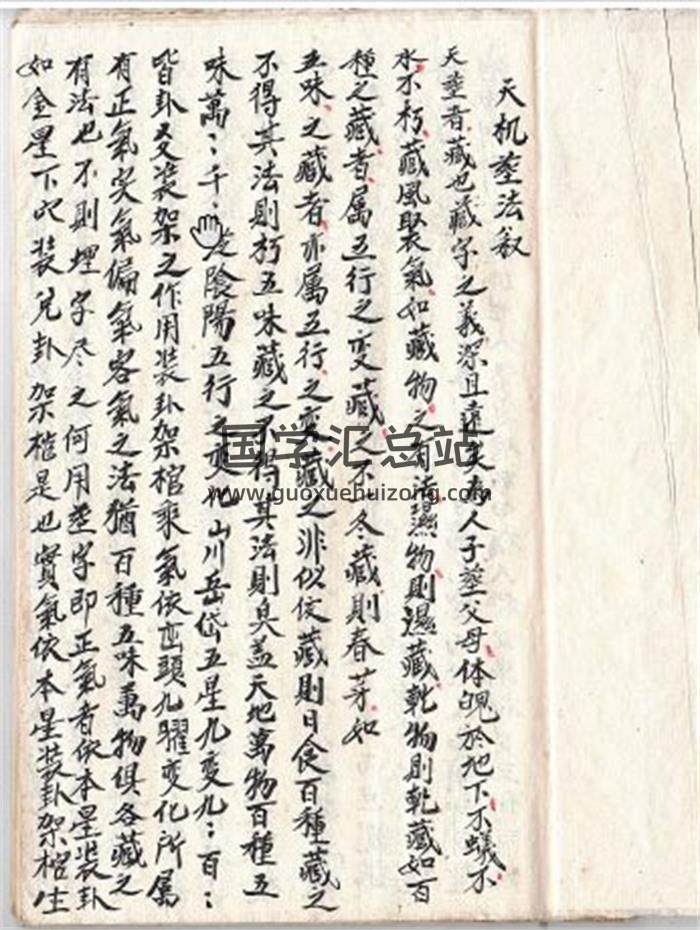 天机塟法叙
天塟者藏也藏字之義深且遠矣為人子塟父母体魄於地下不蟻不
水不朽藏風聚氣如藏物之有法濕物則濕藏乾物則乾藏如百
種之藏者属五行之变藏之不冬藏則春芽如
五味之藏者亦属五行之变藏之非似伩藏則日食百種藏之
不得其法則朽五味藏之不得其法則臭盖天地萬物百種五
味萬：千：陰陽五行之变化山川岳岱五星九变九：百：
皆卦爻装架之作用装卦架棺乘氣依巒頭九曜变化所属
有正氣实氣偏氣客氣之法猶百種五味萬物俱各藏之
有法也不則埋字尽之何用塟字即正氣者依本星装卦
如金星下穴装兑卦架棺是也實氣依本星装卦架棺生
国学汇总站
www.guoxuehuizong.com